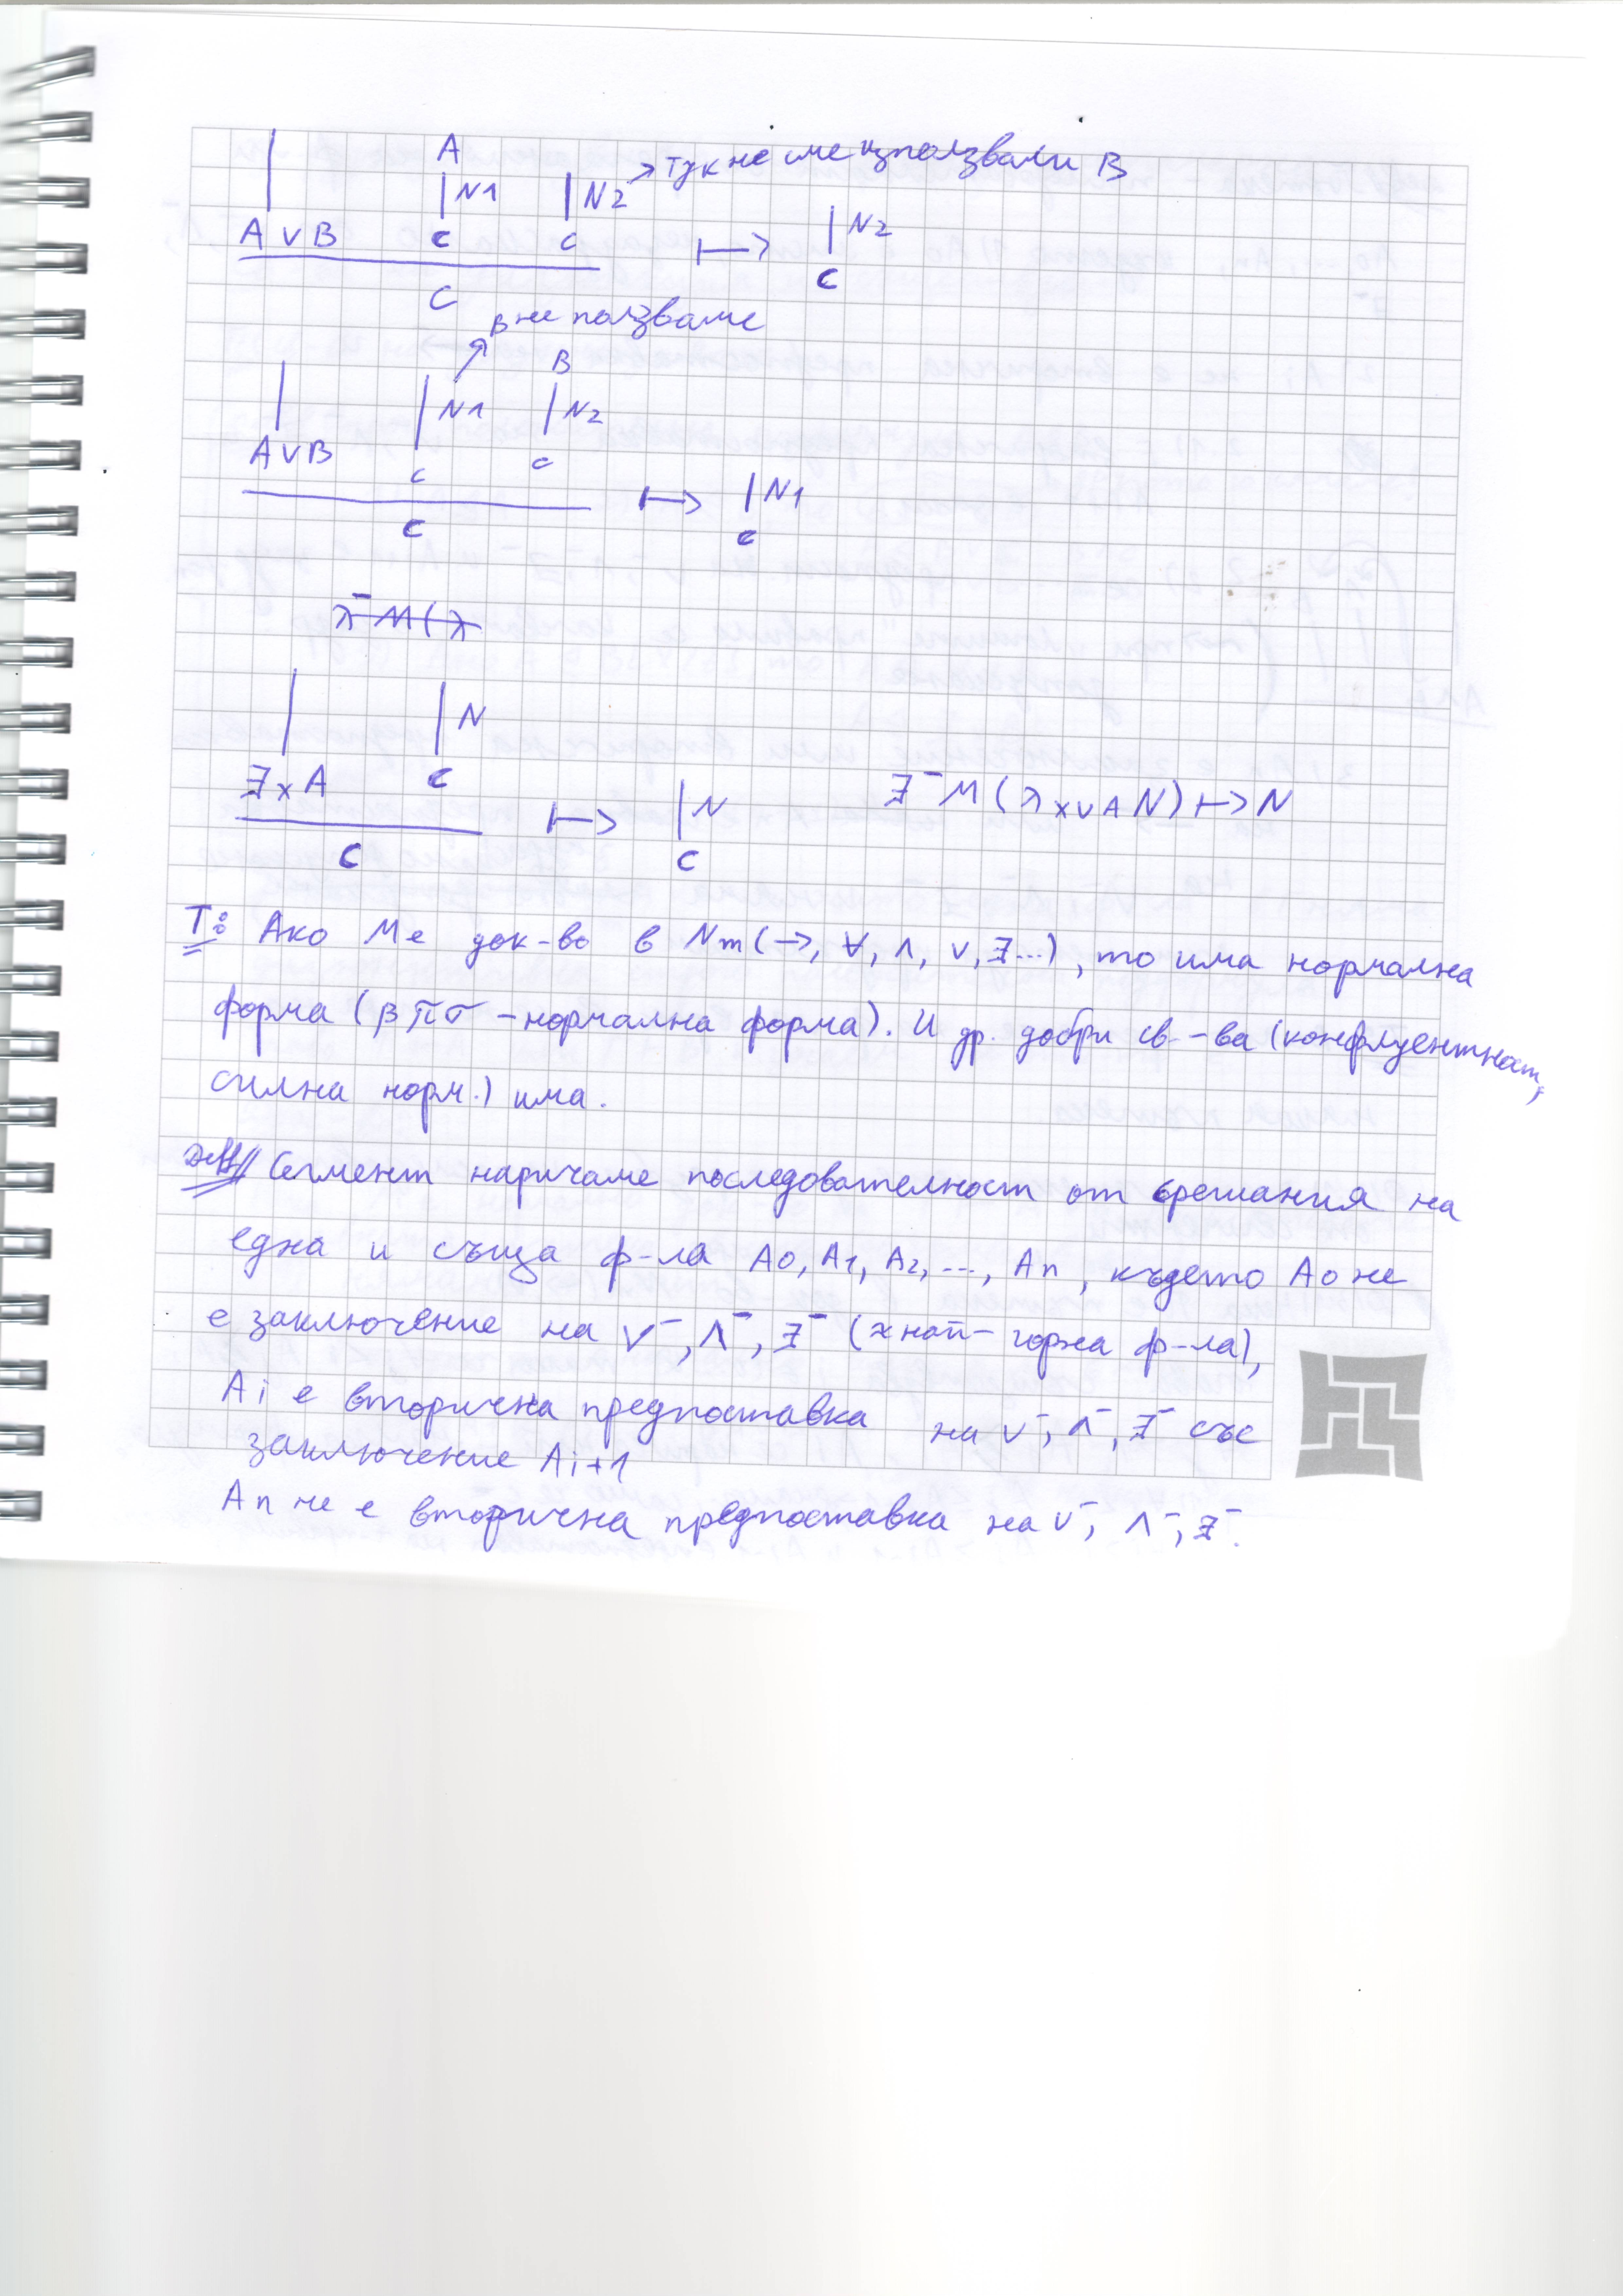 A
N1 N2 → тук не сме използвали B
A ∨ B c c ↦ N2
c
C
B не ползваме
B
N1 N2
A ∨ B c c ↦ N1
c c
N
∃xA c ↦ N ∃⁻M(λxvA N) ↦ N
c c
T: Ако M е док-во в Nm(→, ∀, ∧, ∨, ∃...), то има нормална
форма (βπσ - нормална форма). И др. добри св-ва (конфлуентност,
силна норм.) има.
Деф// Сегмент наричаме последователност от срещания на
една и съща ф-ла A0, A1, A2, ..., An, където A0 не
е заключение на ∨⁻, ∧⁻, ∃⁻ (≈ най-горна ф-ла),
Ai е вторична предпоставка на ∨⁻, ∧⁻, ∃⁻ със
заключение Ai+1
An не е вторична предпоставка на ∨⁻, ∧⁻, ∃⁻.